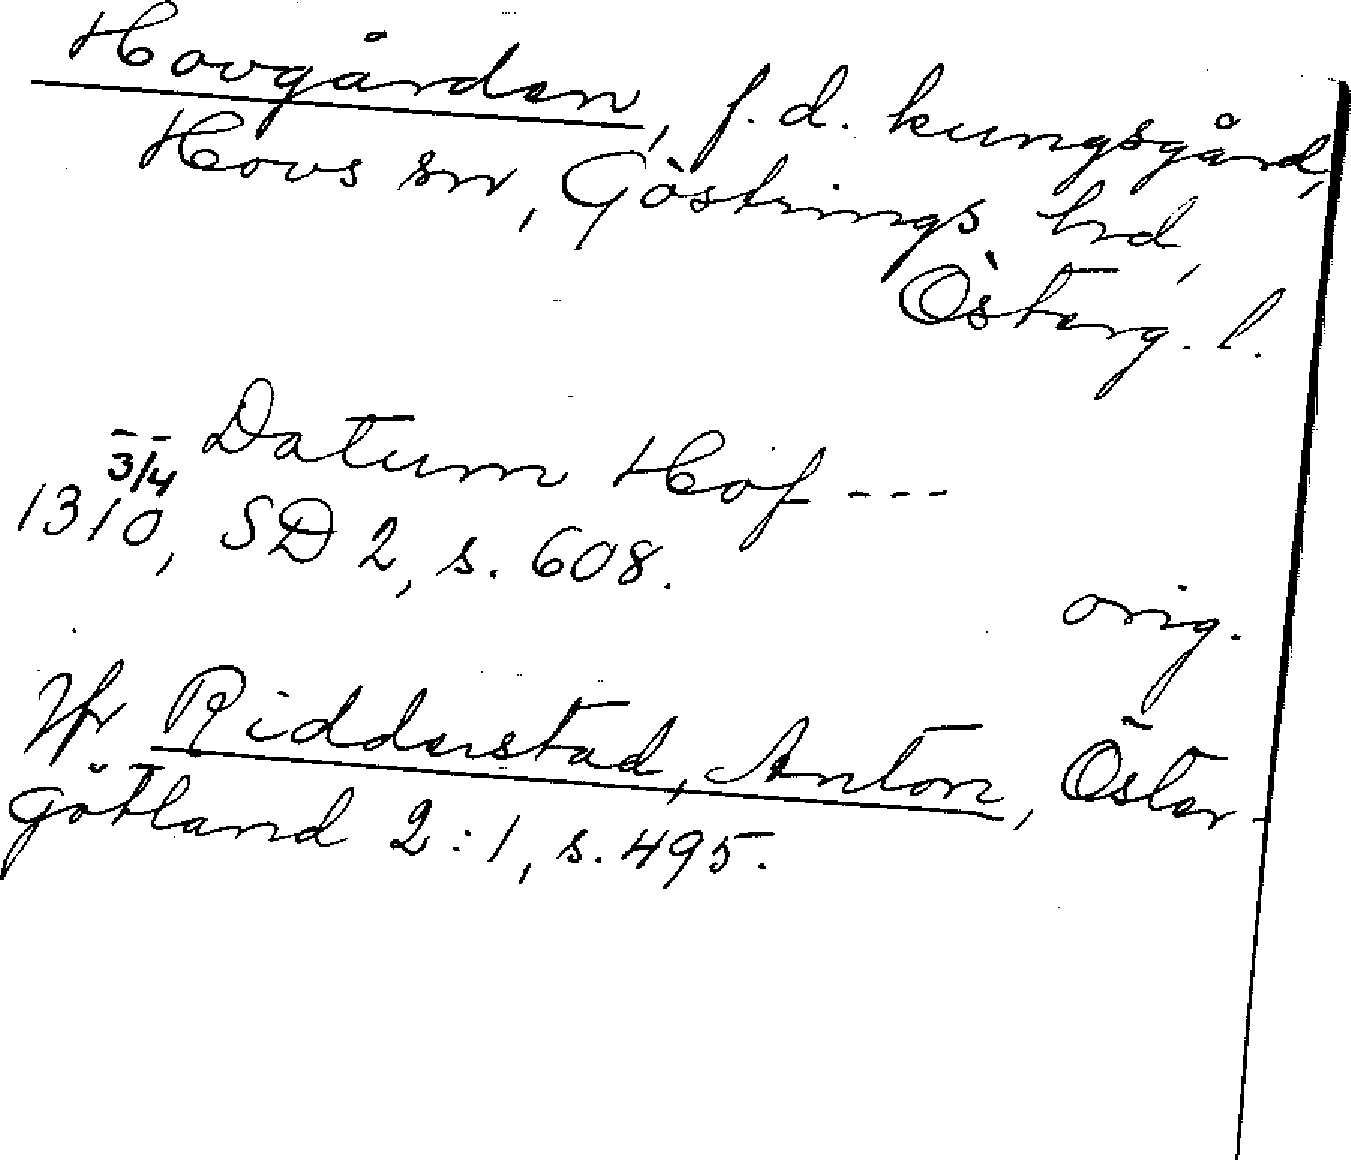 Hovgården, f.d. kungsgård,
Hovs sn, Göstrings hd,
Österg. l.
-- Datum Hof ---
3/4
1310, SD 2, s. 608.
orig.
Jfr Ridderstad, Anton, Öster-
götland 2:1, s. 495.